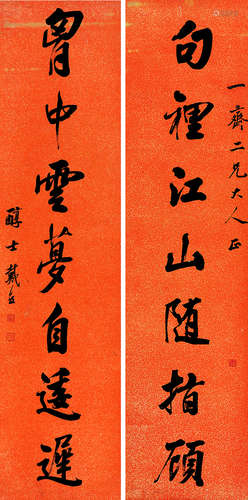 一齋二兄大人正
句裡江山隨指顧
胷中雲夢自逶遲
醇士戴熙